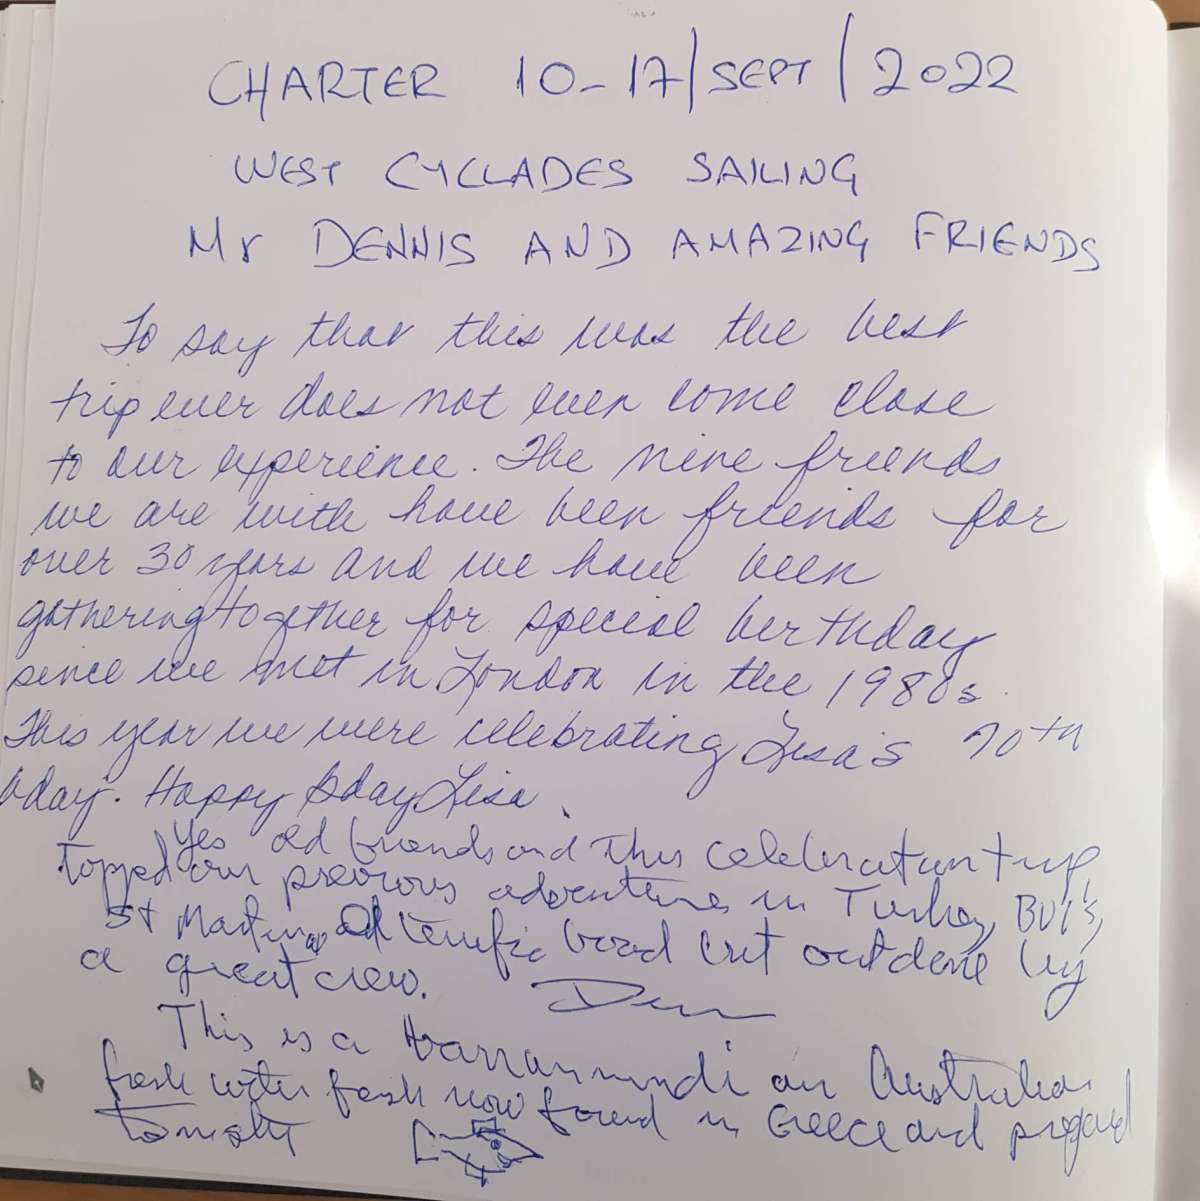 CHARTER 10-17/SEPT/2022
WEST CYCLADES SAILING
Mr DENNIS AND AMAZING FRIENDS
To say that this was the best
trip ever does not even come close
to our experience. The nine friends
we are with have been friends for
over 30 years and we have been
gathering together for special birthday
since we met in London in the 1980s.
This year we were celebrating Lisa's 70th
bday. Happy Bday Lisa.
Yes old friends and this celebration trip
topped our previous adventures in Turkey, BVI's,
St Martin, terrific boad but outdone by
a great crew.
This is a Barramundi an Australian
fresh water fish now found in Greece and prepared
tonight